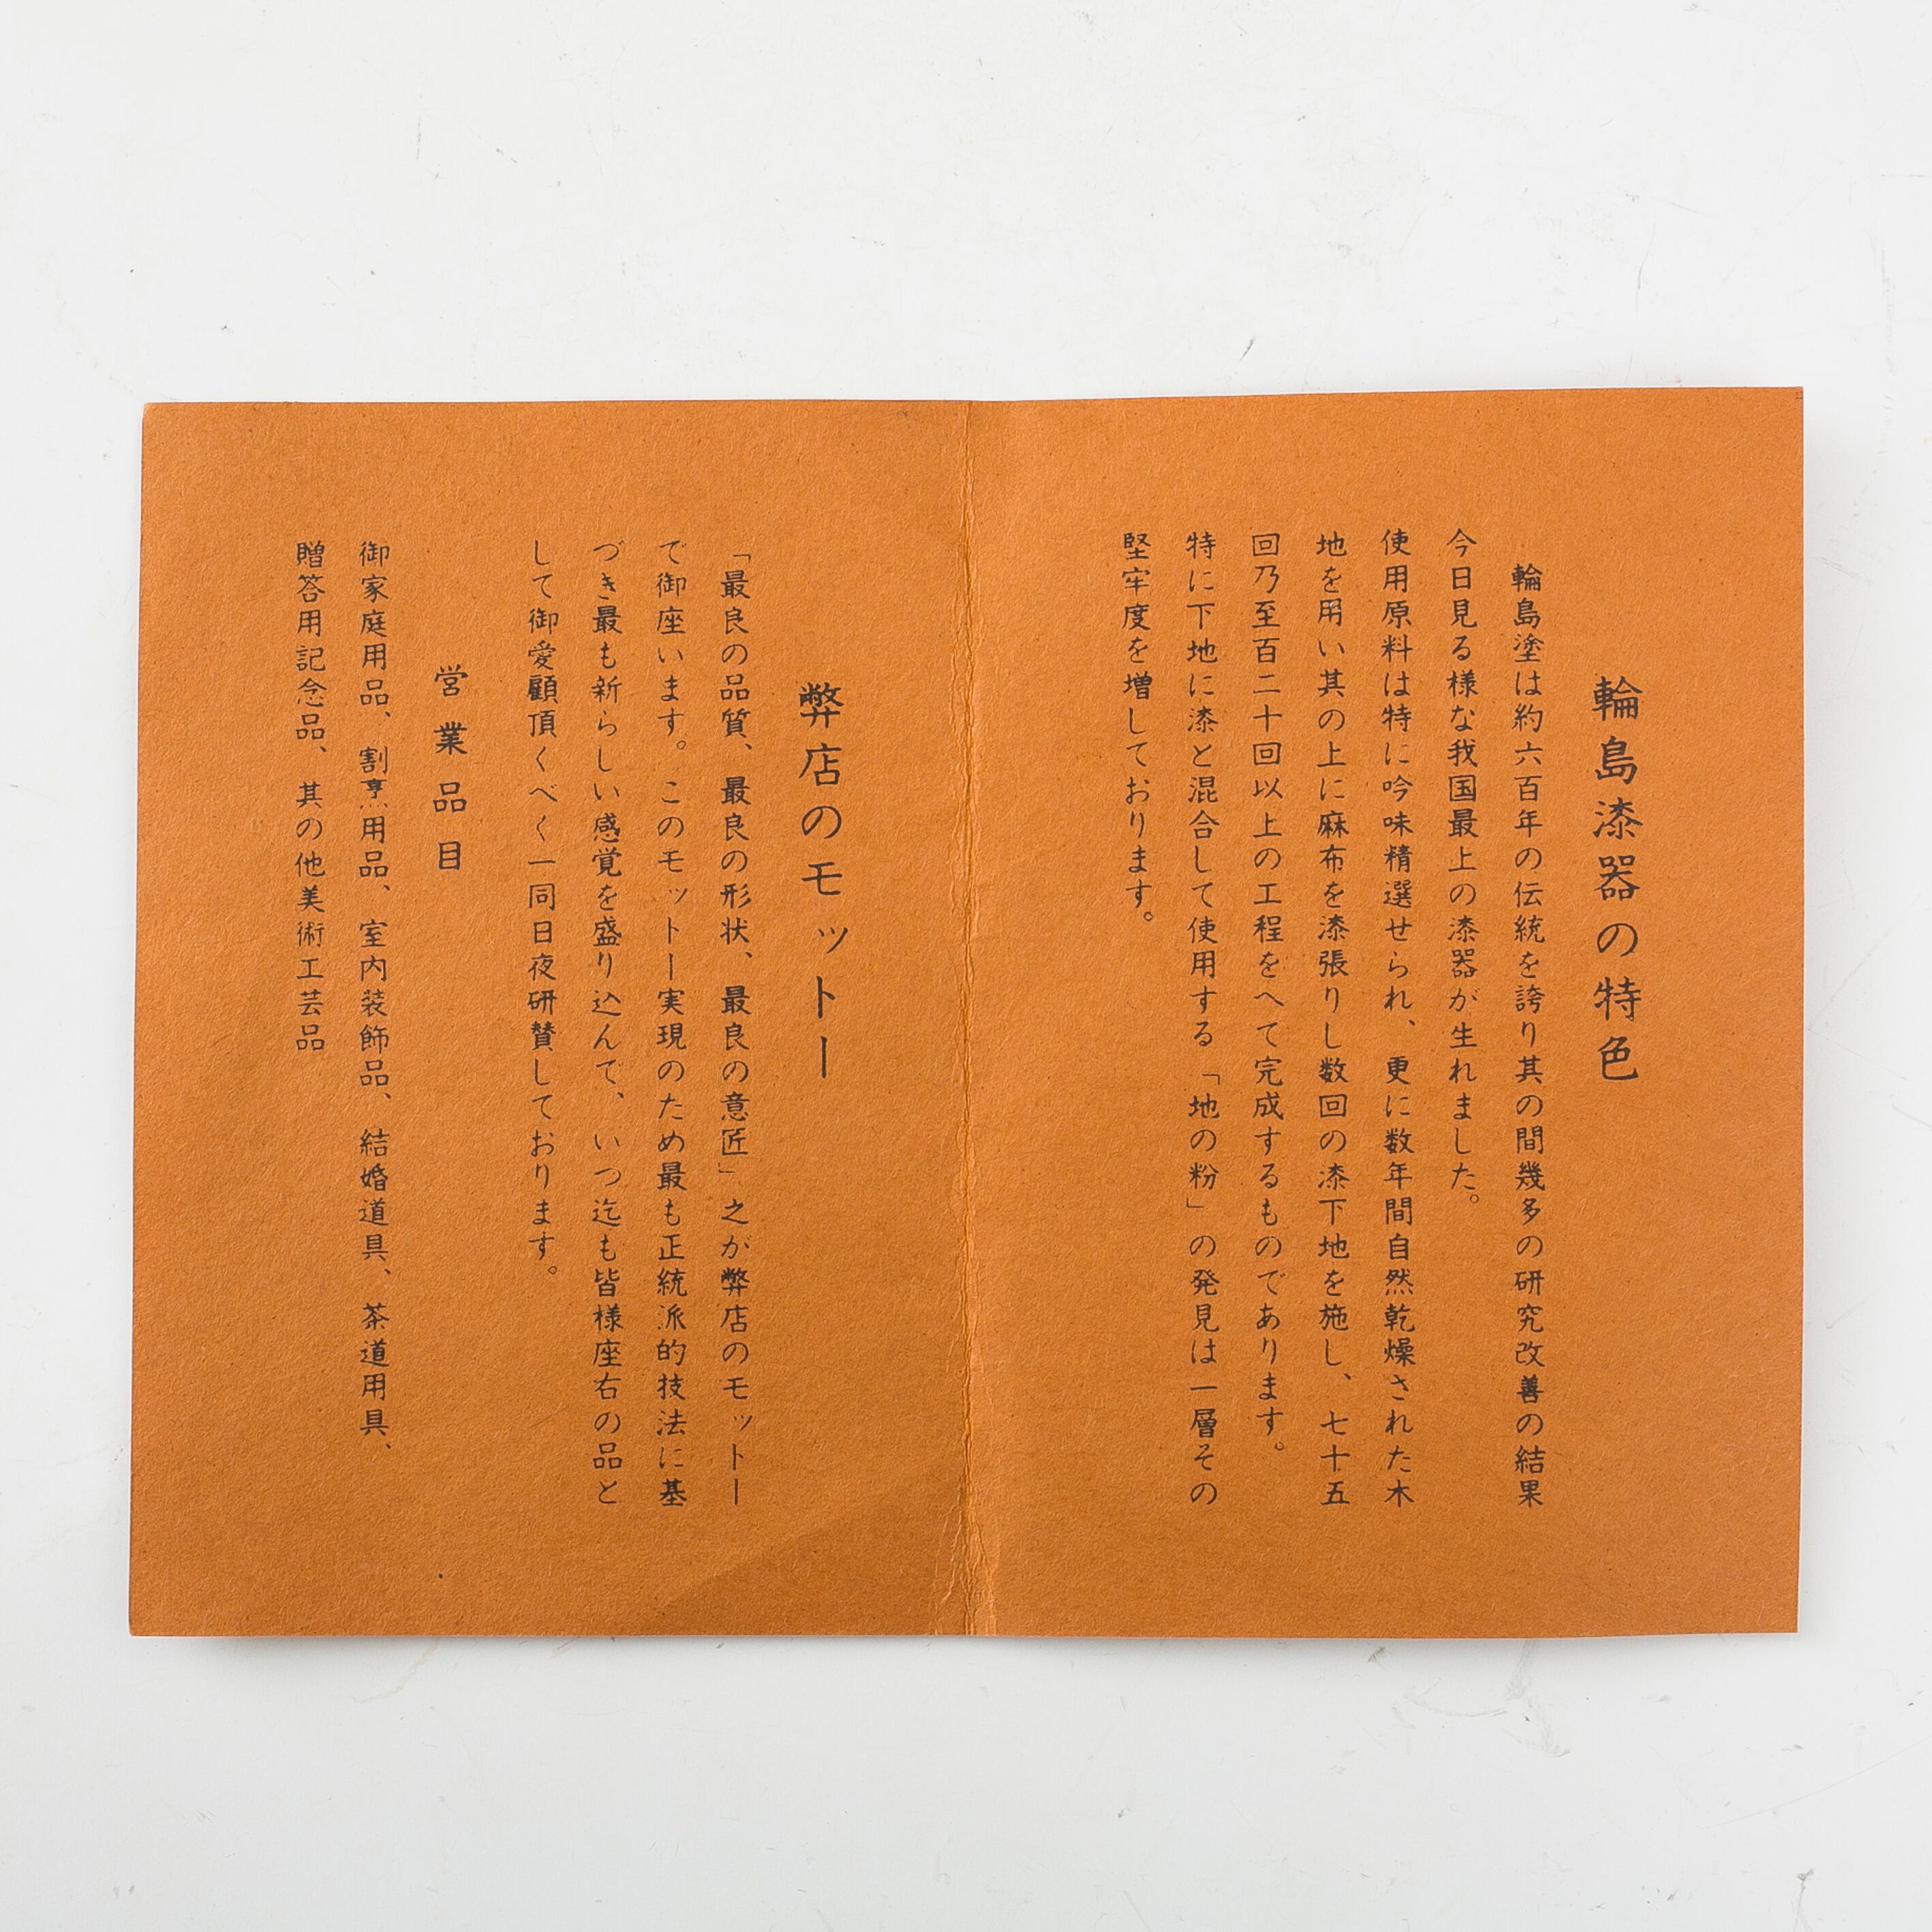 輪島漆器の特色
輪島塗は約六百年の伝統を誇り其の間幾多の研究改善の結果
今日見る様な我国最上の漆器が生れました。
使用原料は特に吟味精選せられ、更に数年間自然乾燥された木
地を用い其の上に麻布を漆張りし数回の漆下地を施し、七十五
回乃至百二十回以上の工程をへて完成するものであります。
特に下地に漆と混合して使用する「地の粉」の発見は一層その
堅牢度を増しております。
弊店のモットー
「最良の品質、最良の形状、最良の意匠」之が弊店のモットー
で御座います。このモットー実現のため最も正統派的技法に基
づき最も新らしい感覚を盛り込んで、いつ迄も皆様座右の品と
して御愛顧頂くべく一同日夜研賛しております。
営業品目
御家庭用品、割烹用品、室内装飾品、結婚道具、茶道用具、
贈答用記念品、其の他美術工芸品